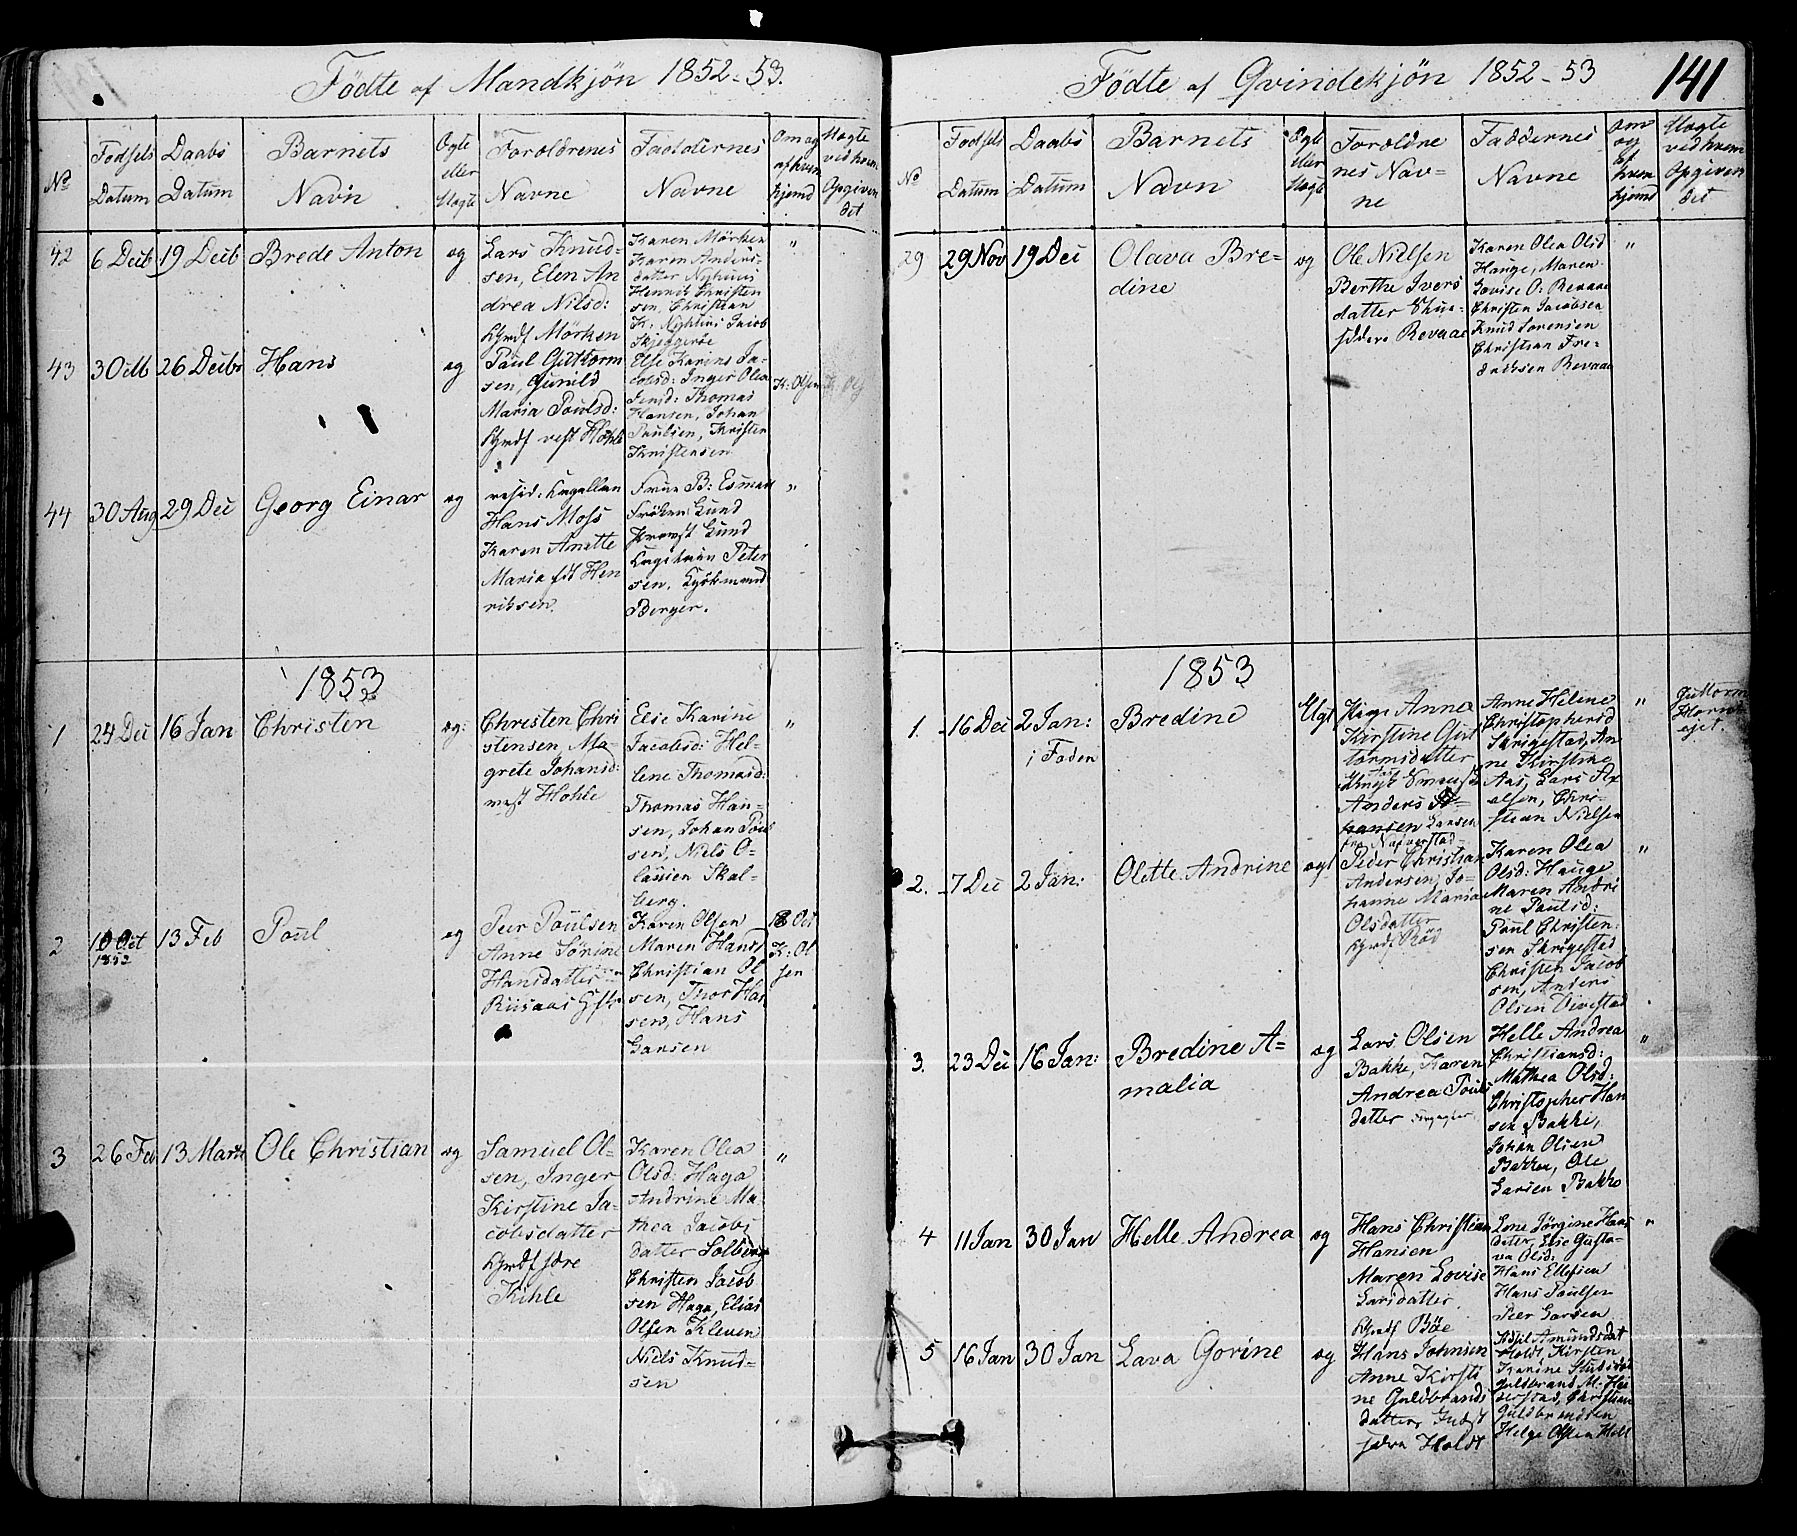 Födte af Mandkjön 1852-53.
No
Födsels Datum
Daabs Datum
Barnets Navn
Ægte eller Uægte
Forældrenes Navne
Faddernes Navne
Om og af hvem hjemd
Uægte ved hvem Opgiven det
42
6 Decb
19 Decb
Brede Anton
æg
Lars Knud-
sen, Elen An
drea Nilsd:
Mörken
Karen Mörken
Karen Anders-
datter Nyhuus
Henrik Christen
sen, Christian
Jacob
"
43
3 Octb
26 Decbr
Hans
æg
Paul Guttorm
sen, Gunild
Maria Poulsd:
vest Hohle
Else Karine Ja-
cobsd: Inger Olea
Jensd: Thomas
Hansen, Johan
Paulsen, Kristen
Kristensen
K: Olsen
44
30 Aug
29 Dec
Georg Einar
æg
Hans Moss
Karen Anette
Maria föd Hen
riksen.
Frue B: Esmark
Fröken Lund
Provst Lund
Capitain Peter
sen,
Berger.
"
1853
1
24 Dec
16 Jan
Christen
æg:
Christen Chri
stensen, Ma-
grete Johansd:
vest Hohle
Else Karine
Jacobsd: Hel-
lene Thomasd:
Thomas Han-
sen, Johan Poul
sen, Niels O-
lausen Skal-
berg.
"
2
10 Oct
1852
13 Feb
Poul
æg
Peer Poulsen
Anne Sörine
Hansdatter
Riisaas
Karen Olsen
Maren Hansd
Christian Ol
sen, Thor Han
sen, Hans
Larsen
18 Oct
K: Ol
sen
3
26 Feb
13 Marts
Ole Christian
æg
Samuel Ol-
sen, Inger
Kirstine Ja-
cobsdatter
Kihle
Karen Olea
Olsd: Haga
Andrine Ma
thea Jacobs
datter Solberg
Christen Jacob
sen Haga, Elias
Olsen Kleven
Niels Knud-
sen
"
Födte af Qvindekjön 1852-53
141
No
Födsels Datum
Daabs Datum
Barnets Navn
Ægte eller Uægte
Forældre
nes Nav-
ne
Faddernes Navne
Om og af hvem hjemd
Uægte ved hvem Opgiven det
29
29 Nov
19 Dec
Olava Bre-
dine
æg
Ole Nielsen
Berthe Ivers
datter
Revaae
Karen Olea Olsd
Hauge, Maren
Lovise O: Revaae
Christen Jacobsen
Knud Sorensen
Christian Fre-
driksen Revaae
"
1853
1.
16 Dec
2 Jan:
i Faden
Bredine
Uægt
Pige Anna
Kirstine Gut
tormsdatter
Anders
Larsen
fra Nafverstad
Anne Helene
Christophersd
Skrigestad, An
ne Kirstine
Aas, Lars Ax
elsen, Chri-
stian Nielsen
"
Guttorm
2.
7 Dec
2 Jan:
Olette Andrine
ægt
Peder Christian
Andersen, Jo-
hanne Maria
Olsdatter
Röd
Karen Olea
Olsd: Hauge
Maren Andri
ne Paulsd:
Paul Christen-
sen Skrigestad
Christen Jacob
sen, Anders
Olsen
"
3.
23 Dec
16 Jan:
Bredine A-
malia
æg
Lars Olsen
Bakke, Karen
Andrea Pouls
datter
Helle Andrea
Christiansd:
Mathea Olsd:
Christopher Han
sen Bakke,
Johan Olsen
Bakke, Ole
Larsen Bakke
"
4
11 Jan
30 Jan
Helle Andrea
æg
Hans Christian
Hansen
Maren Lovise
Larsdatter
Böe
Lene Jörgine Hans
datter, Else Gusta-
va Olsd:
Hans Ellefsen
Hans Paulsen
Peer Larsen
"
5
16 Jan
30 Jan
Lava Gorine
æg
Hans Johnsen
Anne Kirsti
ne Guldbrands
datter,
Holdt
Amundsdat
Holdt, Kirsten
Karine
Guldbrand
Christian
Guldbrandsen
Helge Olsen Holt